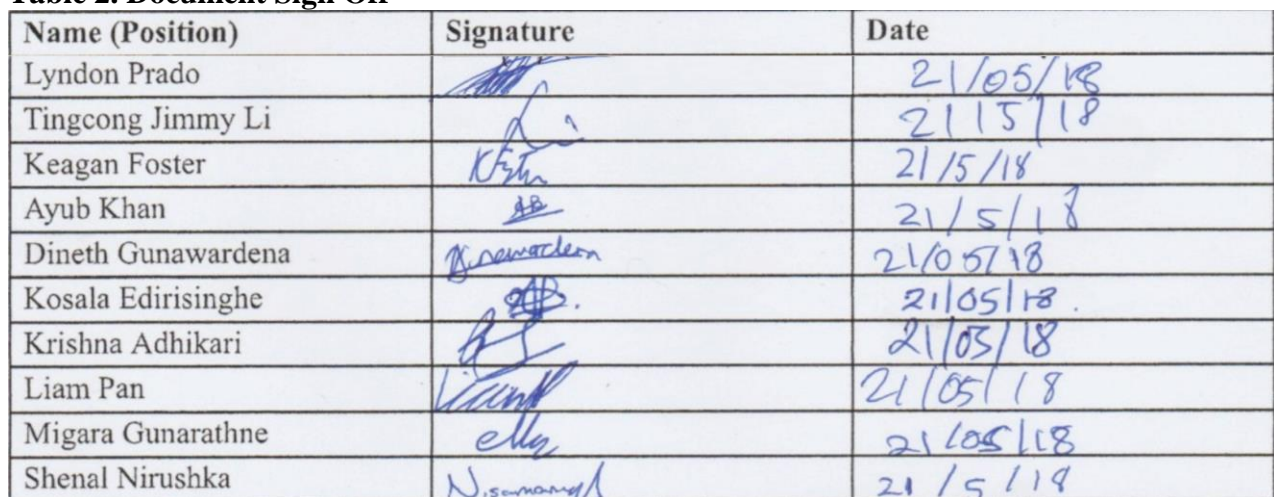 Table 2. Document Sign Off
Name (Position) Signature Date
Lyndon Prado 21/05/18
Tingcong Jimmy Li Li 21/5/18
Keagan Foster 21/5/18
Ayub Khan 21/5/18
Dineth Gunawardena 21/05/18
Kosala Edirisinghe 21/05/18.
Krishna Adhikari 21/05/18
Liam Pan 21/05/18
Migara Gunarathne 21/05/18
Shenal Nirushka 21/5/18